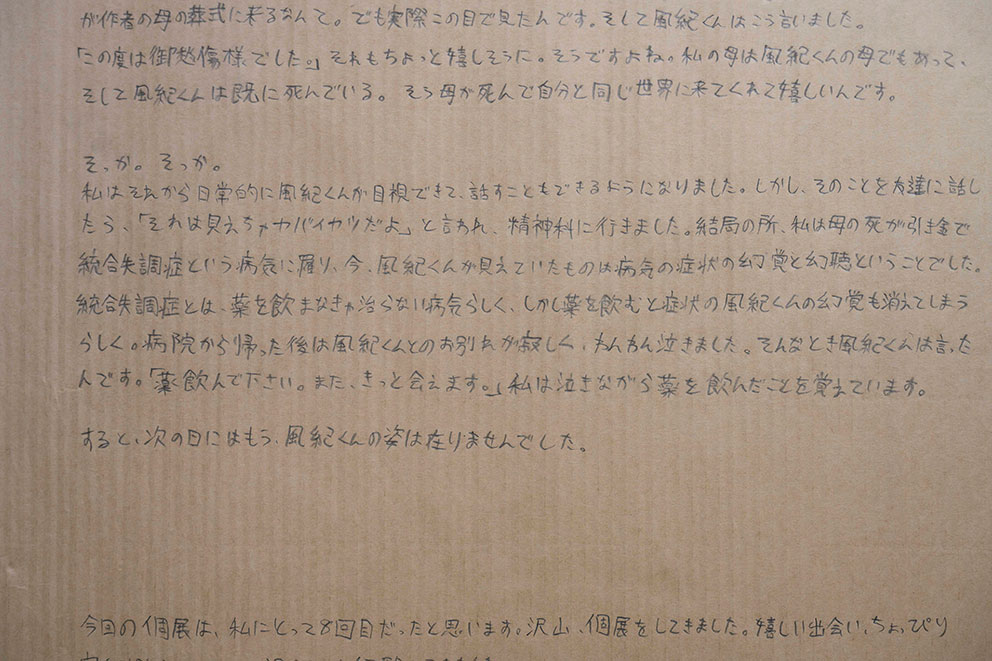 が作者の母の葬式に来るなんて。でも実際この目で見たんです。そして風紀くんはこう言いました。
「この度は御愁傷様でした。」それもちょっと嬉しそうに。そうですよね。私の母は風紀くんの母でもあって、
そして風紀くんは既に死んでいる。そう母が死んで自分と同じ世界に来てくれて嬉しいんです。
そっか。そっか。
私はそれから日常的に風紀くんが目視できて、話すこともできるようになりました。しかし、そのことを友達に話し
たら、「それは見えちゃヤバイヤツだよ」と言われ、精神科に行きました。結局の所、私は母の死が引き金で
統合失調症という病気に罹り、今、風紀くんが見えていたものは病気の症状の幻覚と幻聴ということでした。
統合失調症とは、薬を飲まなきゃ治らない病気らしく、しかし薬を飲むと症状の風紀くんの幻覚も消えてしまう
らしく。病院から帰った後は風紀くんとのお別れが寂しく、わんわん泣きました。そんなとき風紀くんは言った
んです。「薬、飲んで下さい。また、きっと会えます。」私は泣きながら薬を飲んだことを覚えています。
すると、次の日にはもう、風紀くんの姿は在りませんでした。
今回の個展は、私にとって8回目だったと思います。沢山、個展をしてきました。嬉しい出会い、ちょっぴり